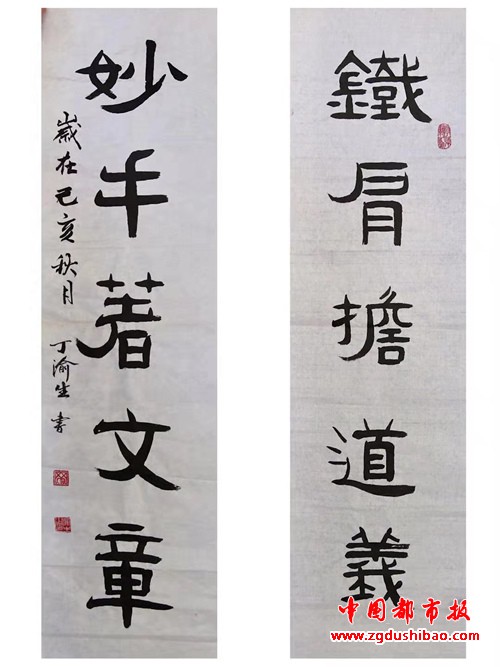 鐵肩擔道義
妙手著文章
歲在己亥秋月
丁渝生書
中国都市报
www.zgdushibao.com